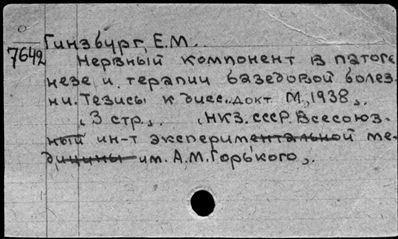 Гинзбург, Е.М.
7642 Нервный компонент в патоге
незе и терапии базедовой болез-
ни. Тезисы к дисс. докт М, 1938,.
, 3 стр.,. , НКЗ. СССР. Всесоюз-
ный ин-т экспериментальной ме-
дицины им. А.М. Горького,.